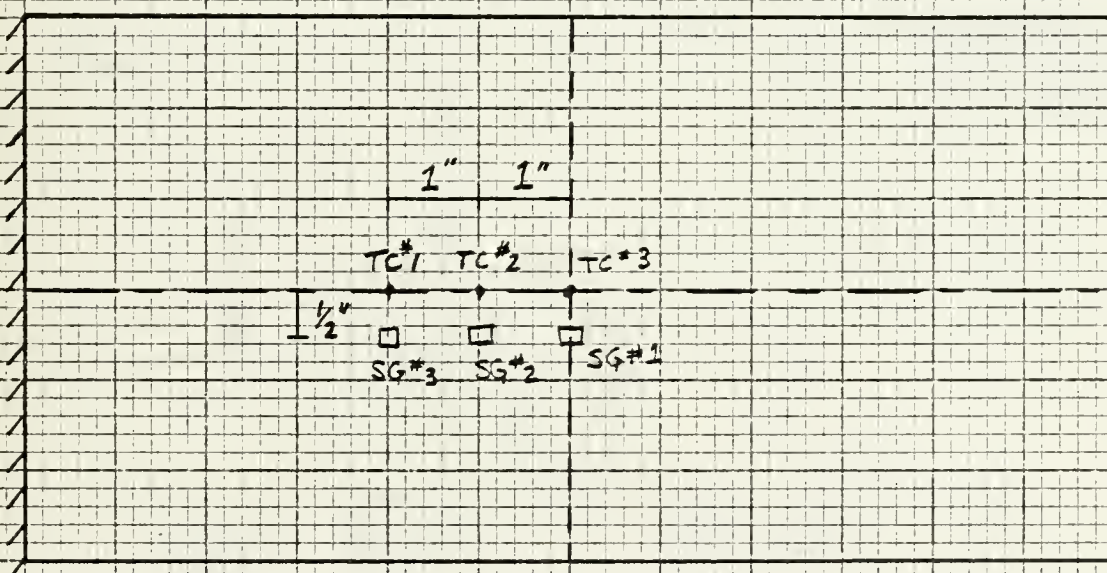 1" 1"
TC#1 TC#2 TC#3
1/2"
SG#3 SG#2 SG#1